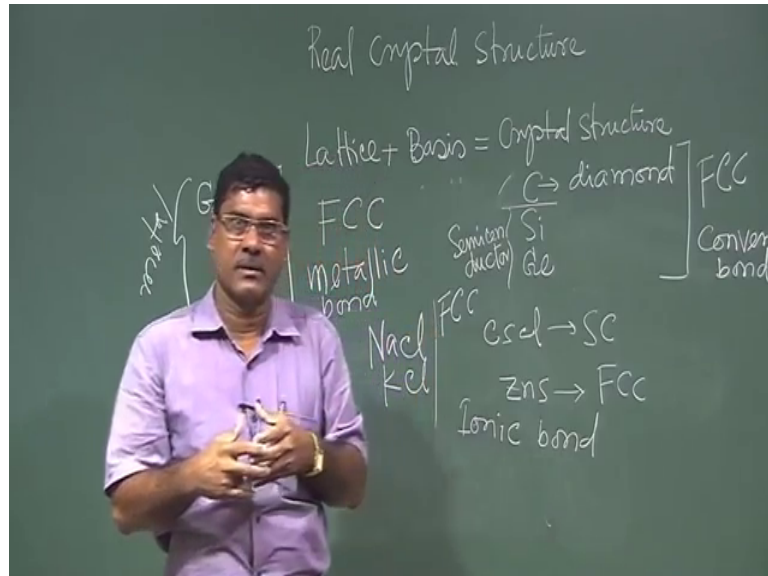 Real Cryptal Structure
Lattice + Basis = Cryptal Structure
metal
FCC
metallic
bond
C → diamond
Semicon
ductor
Si
Ge
FCC
Conven
bond
NaCl
KCl
FCC
CsCl → SC
ZnS → FCC
Ionic bond